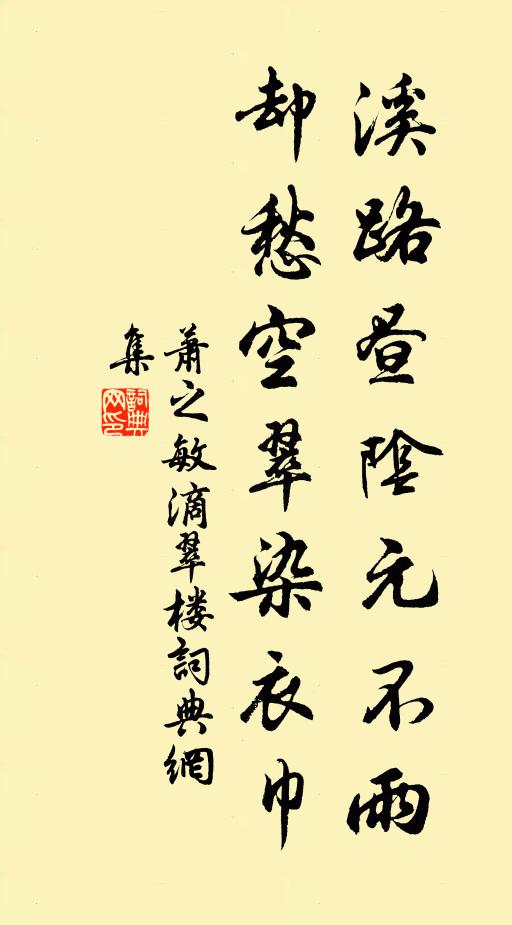 溪路昼陰元不雨
却愁空翠染衣巾
萧之敏滴翠楼詞典網
集
詞典
网印